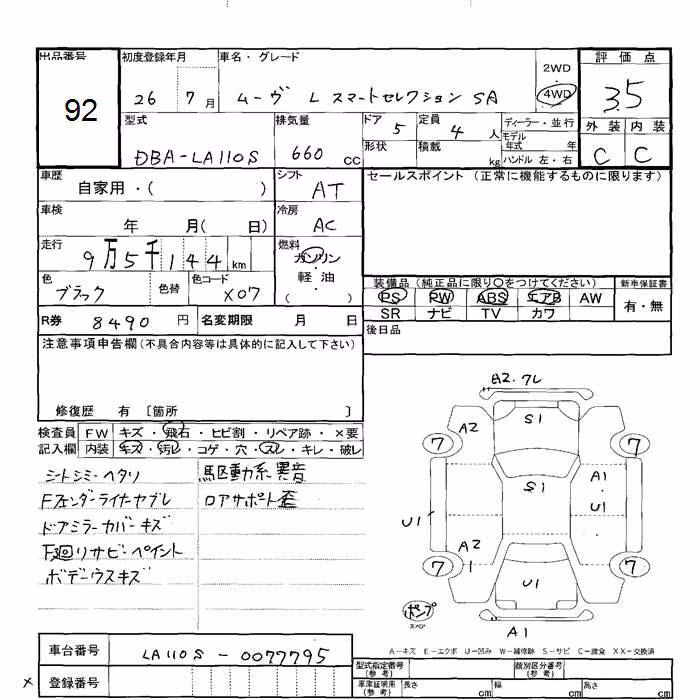 出品番号 初度登録年月 車名・グレード 2WD 評価点
92 26 7月 ムーヴ L スマートセレクション SA 4WD 3.5
型式 排気量 ドア 5 定員 4人 ディーラー・並行 外装 内装
DBA-LA110S 660cc 形状 積載 kg モデル年式 年 C C
ハンドル 左・右
車歴 自家用・( ) シフト AT セールスポイント (正常に機能するものに限ります)
車検 年 月( 日) 冷房 AC
走行 9万5千144km 燃料 ガソリン・軽油 ( )
色 ブラック 色替 色コード X07 装備品 (純正品に限り○をつけてください) 新車保証書
PS PW ABS エアB AW 有・無
R券 8490円 名変期限 月 日 SR ナビ TV カワ
注意事項申告欄(不具合内容等は具体的に記入して下さい) 後日品
修復歴 有 〔箇所 〕
検査員 FW キズ・飛石・ヒビ割・リペア跡・×要
記入欄 内装 キズ・汚レ・コゲ・穴・スレ・キレ・破レ
シートシミ・ヘタリ 駆動系異音
Fフェンダーライナーヤブレ ロアサポート歪
ドアミラーカバーキズ
下廻リサビ・ペイント
ボデーウスキズ
A2.フレ
A2 S1
7 7
S1 A1
U1 U1
A2
7 1 7
U1
ポンプ
スペア
A1
A-キズ E-エクボ U-凹み W-補修跡 S-サビ C-腐食 XX-交換済
車台番号 LA110S-0077795
× 登録番号
型式指定番号(参考) 類別区分番号(参考)
車庫証明用(参考) 長さ cm 幅 cm 高さ cm